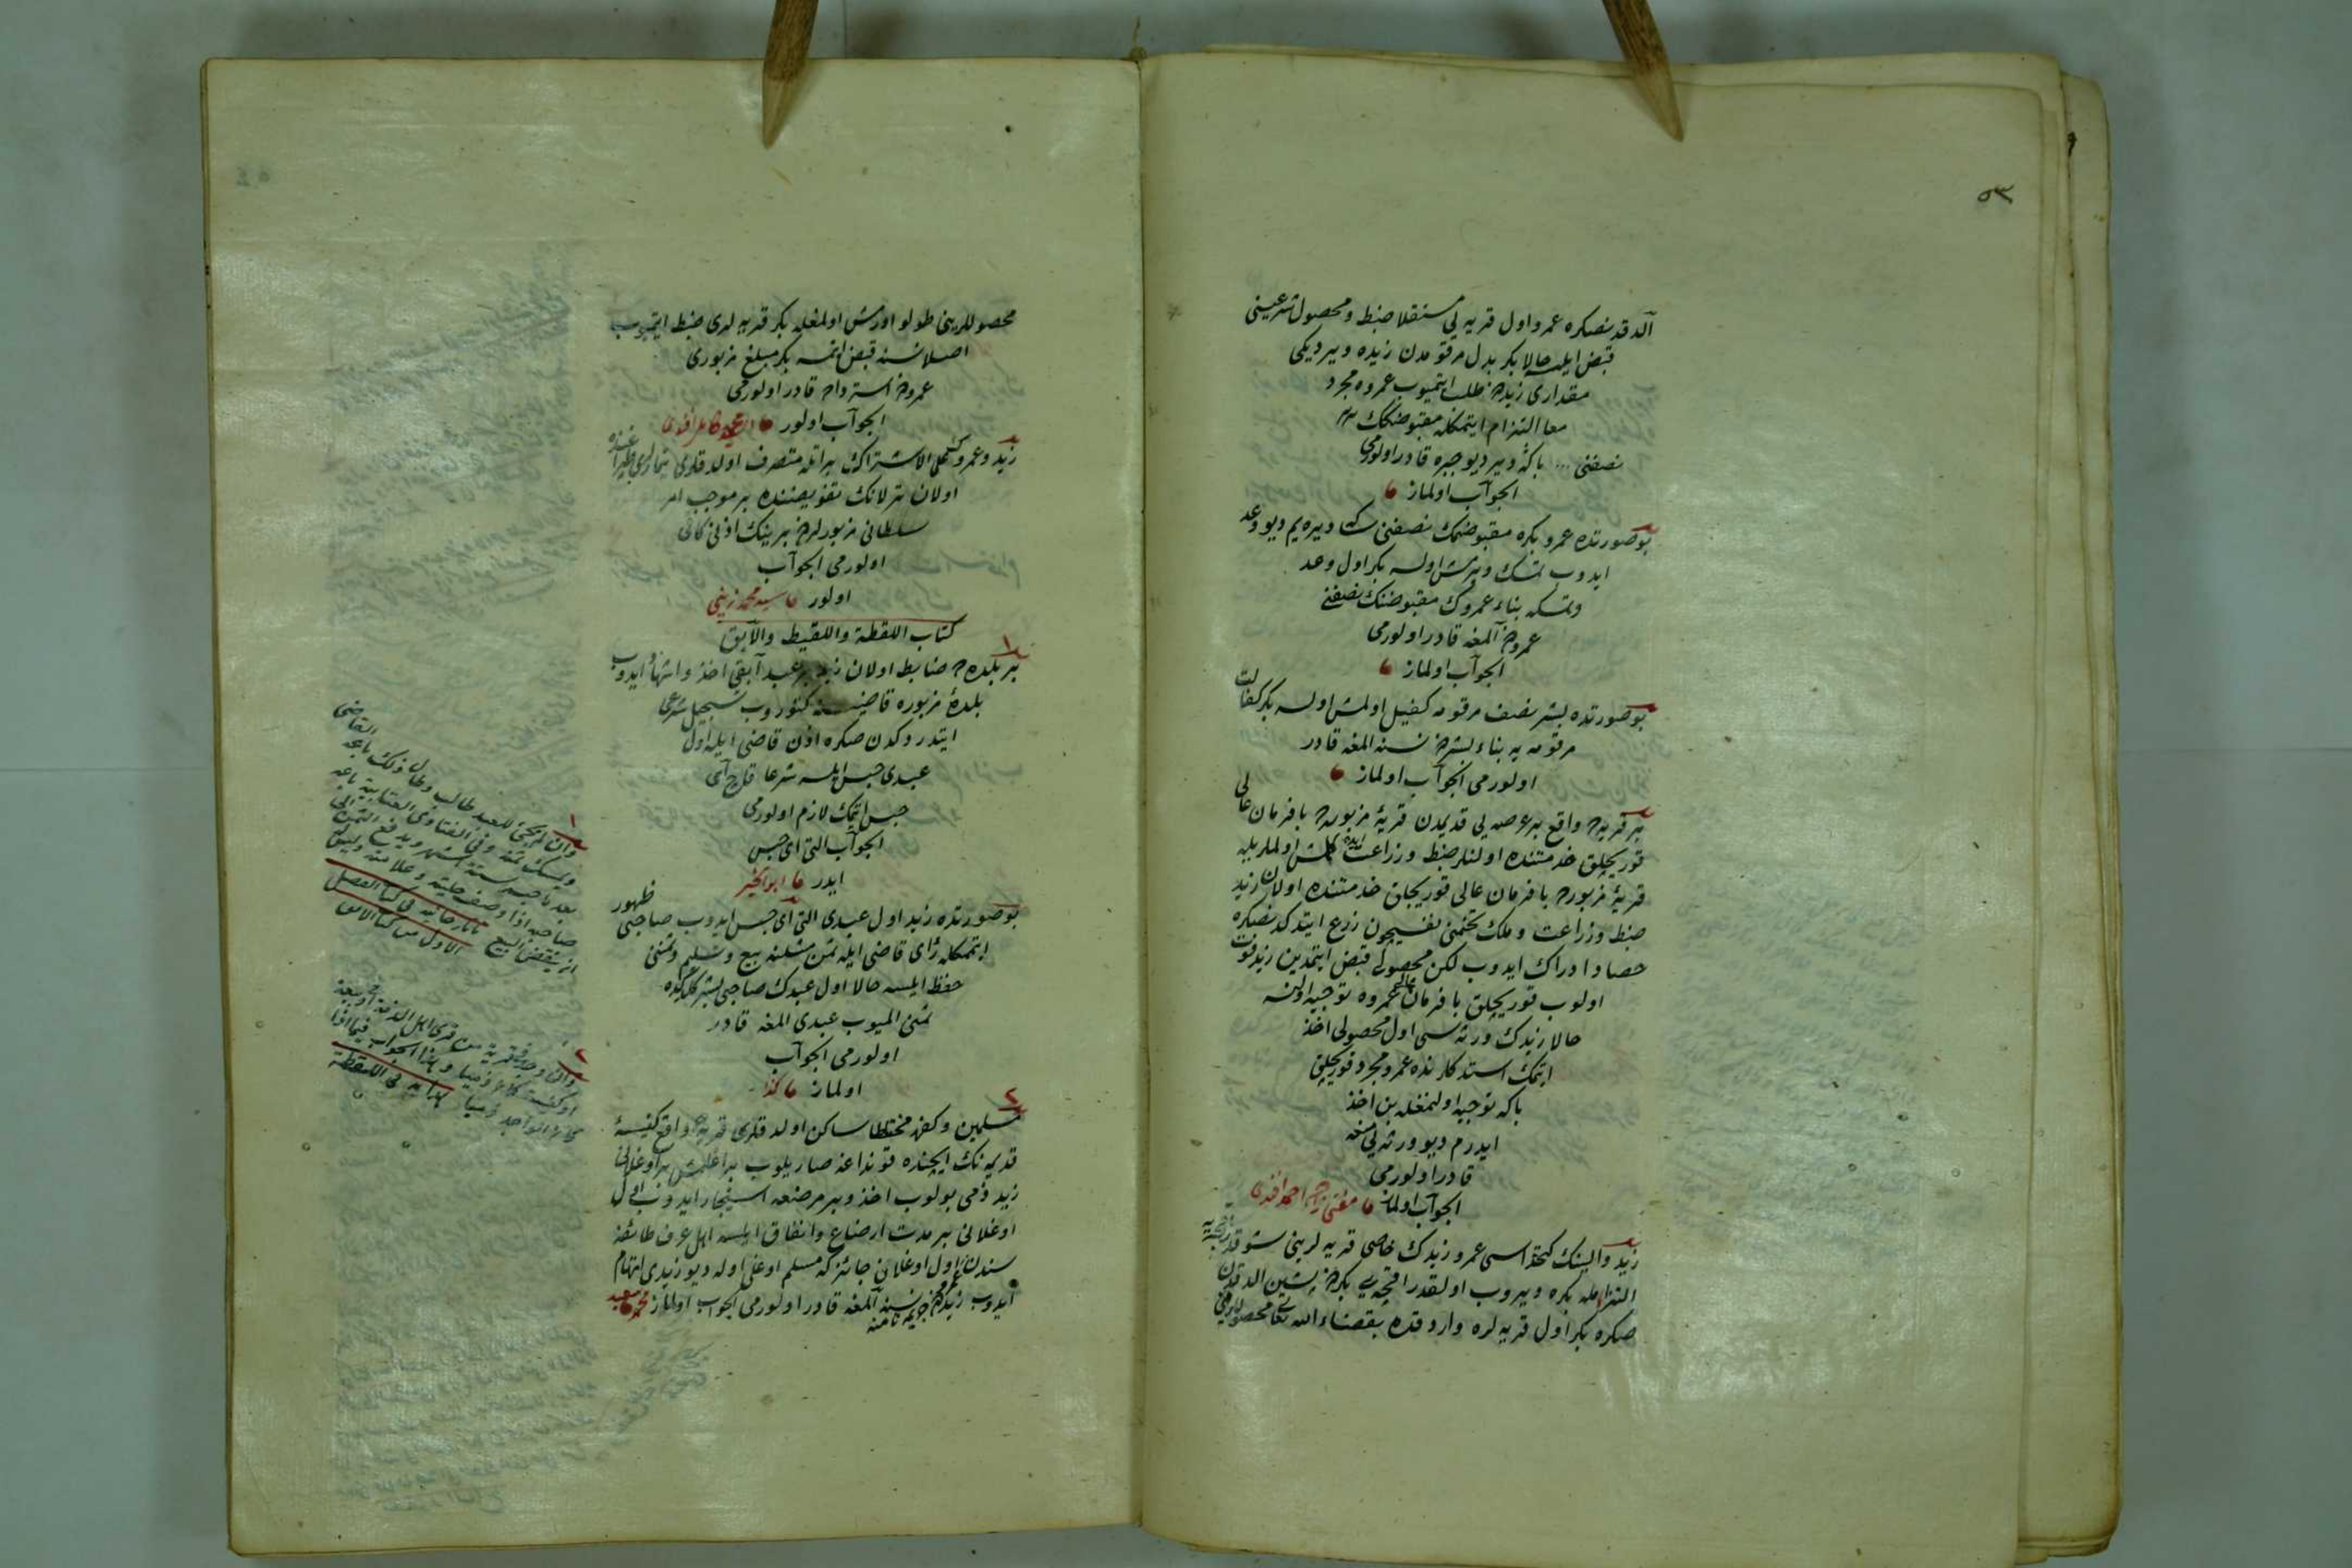 ٥٣
آلدقدنصكره عمرو اول قريه يى مستقلا ضبط ومحصول شرعيسنى
قبض ايلسه حالا بكر بدل مرقومدن زيده ويرديكى
مقدارى زيددن طلب ايتميوب عمروه مجرد
معا التزام ايتمكله مقبوضكك
نصفنى بكا ويرديو جبره قادر اولورمى
الجواب اولماز
بوصورتده عمرو بكره مقبوضمك نصفنى سكا ويره يم ديو وعد
ايدوب تمسك ويرمش اولسه بكر اول وعد
وتمسكه بناء عمروك مقبوضنك نصفنى
عمرودن آلمغه قادر اولورمى
الجواب اولماز
بوصورتده بشر نصف مرقومه كفيل اولمش اولسه بكر كفالت
مرقومه يه بناء بشردن نسنه المغه قادر
اولورمى الجواب اولماز
بر قريه ده واقع بر عرصه يى قديمدن قريۀ مزبوره ده با فرمان عالى
قوريجيلق خدمتنده اولنلر ضبط وزراعت ايده كلمش اولملريله
قريۀ مزبوره ده با فرمان عالى قوريجيلق خدمتنده اولان زيد
ضبط وزراعت وملك تخمنى نفسيچون زرع ايتدكدنصكره
حصاد ادراك ايدوب لكن محصولى قبض ايتمدين زيد فوت
اولوب قوريجيلق با فرمان عالى عمروه توجيه اولنسه
حالا زيدك ورثه سى اول محصولى اخذ
ايتمك استدكلرنده عمرو مجرد قوريجيلق
بكا توجيه اولنمغله بن اخذ
ايدرم ديو ورثه يى منعه
قادر اولورمى
الجواب اولماز مفتى زاده احمد افندى
زيد والينك كتخداسى عمرو زيدك خاص قريه لرينى شو قدر اقچه يه
التزامله بكره ويروب اولقدر اقچه يى بكردن پشين الدقدن
صكره بكر اول قريه لره واردقده بقضاء الله تعالى محصوللرينى
محصوللرينى طولو اورمش اولمغله بكر قريه لرى ضبط ايتميوب
اصلا نسنه قبض ايتمسه بكر مبلغ مزبورى
عمرودن استرداده قادر اولورمى
الجواب اولور
زيد وعمرو على الاشتراك براتله متصرف اولدقلرى تيمارلرى طپراغنده
اولان ترلانك تفويضنده بر موجب امر
سلطانى مزبورلردن برينك اذنى كافى
اولورمى الجواب
اولور سيد محمد زينى
كتاب اللقطة واللقيط والآبق
بر بلده ده ضابط اولان زيد بر عبد آبقى اخذ واشهاد ايدوب
بلدۀ مزبوره قاضيسنه كتوروب تسجيل شرعى
ايتدردكدن صكره اذن قاضى ايله اول
عبدى حبس ايلسه شرعا قاچ آى
حبس ايتمك لازم اولورمى
الجواب التى اى حبس
ايدر ابو الخير
بوصورتده زيد اول عبدى التى آى حبس ايدوب صاحبى ظهور
ايتمكله رأى قاضى ايله ثمن مثلنه بيع وتسليم وثمنى
حفظ ايلسه حالا اول عبدك صاحبى بشر كلدكده
ثمنى الميوب عبدى المغه قادر
اولورمى الجواب
اولماز كذا
مسلمين وكفره مختلطا ساكن اولدقلرى قريه ده واقع كنيسۀ
قديمه نك ايچنده قونداغه صاريلوب براغلمش بر اوغلانى
زيد ذمى بولوب اخذ وبر مرضعه استيجار ايدوب اول
اوغلانى بر مدت ارضاع وانفاق ايلسه اهل عرف طائفه
سندن عمرو اول اوغلان جائزكه مسلم اوغلى اوله ديو زيدى اتهام
ايدوب زيددن جريمه نامنه نسنه آلمغه قادر اولورمى الجواب اولماز
وان لم يجئ للعبد طالب وطال ذلك باعه القاضى
ويمسك ثمنه وفى الفتاوى العتابية باعه
بعد ما حبسه ستة اشهر ويدفع الثمن الى
صاحبه اذا وصف حليته وعلامته وليس له
ان ينقض البيع تاتارخانيه فى كتاب الفصل
الاول من كتاب الابق
وان وجد فى قرية من قرى اهل الذمة او بيعة
او كنيسة كان ذميا وهذا الجواب فيما اذا
كان الواجد ذميا هدايه فى اللقطة